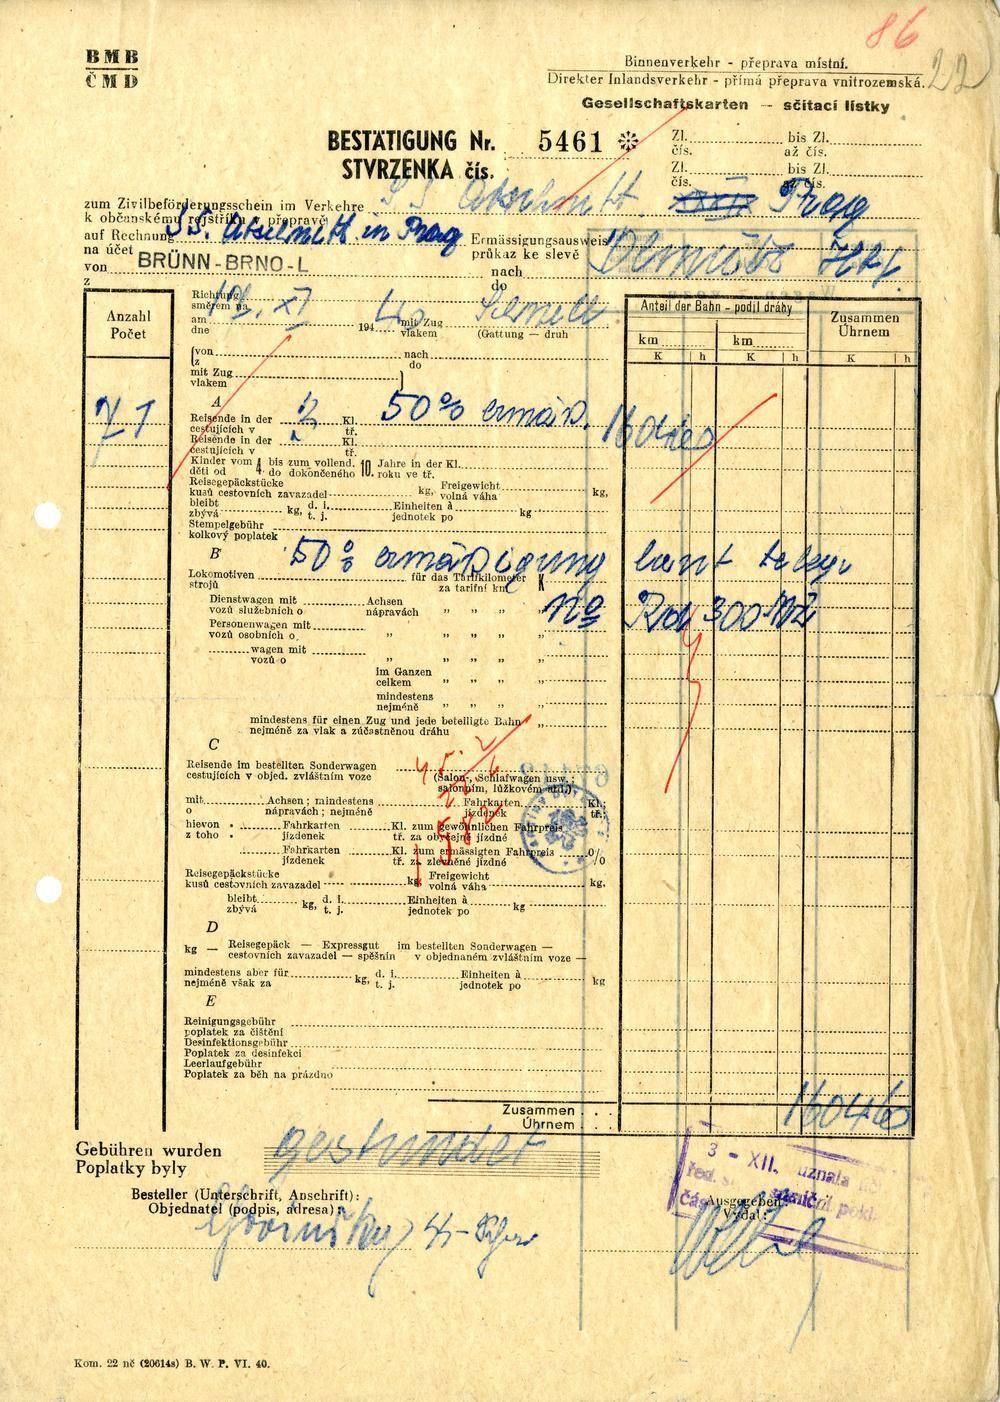 86
22
BMB
ČMD
Binnenverkehr - přeprava místní.
Direkter Inlandsverkehr - přímá přeprava vnitrozemská.
Gesellschaftskarten — sčítací lístky
BESTÄTIGUNG Nr. 5461
STVRZENKA čís.
Zl. bis Zl.
čís. až čís.
Zl. bis Zl.
čís. až čís.
zum Zivilbeförderungsschein im Verkehre Prag
k občanskému rejstříku v přepravě
auf Rechnung in Prag Ermässigungsausweis
na účet průkaz ke slevě
von BRÜNN-BRNO-L nach Olmütz
z do
Richtung
směrem na
am XI 1940 mit Zug
dne vlakem (Gattung - druh
von nach
z do
mit Zug
vlakem
Anzahl
Počet
Anteil der Bahn - podíl dráhy
Zusammen
Úhrnem
km km
K h K h K h
A
71 Reisende in der 2 Kl. 50% ermäß. 160460
cestujících v tř.
Reisende in der Kl.
cestujících v tř.
Kinder vom 4 bis zum vollend. 10. Jahre in der Kl.
děti od 4 do dokončeného 10. roku ve tř.
Reisegepäckstücke kg, Freigewicht kg,
kusů cestovních zavazadel volná váha
bleibt kg, d. i. Einheiten à kg
zbývá t. j. jednotek po
Stempelgebühr
kolkový poplatek
B
50% ermäßigung laut
Lokomotiven für das Tarifkilometer K
strojů za tarifní km
Dienstwagen mit Achsen " " " No 300
vozů služebních o nápravách
Personenwagen mit
vozů osobních o " " " "
wagen mit
vozů o " " " "
im Ganzen
celkem " " " "
mindestens
nejméně " " " "
mindestens für einen Zug und jede beteiligte Bahn "
nejméně za vlak a zúčastněnou dráhu
C
Reisende im bestellten Sonderwagen
cestujících v objed. zvláštním voze
(Salon-, Schlafwagen usw.;
salonním, lůžkovém atd.)
mit Achsen; mindestens Fahrkarten Kl.;
o nápravách; nejméně jízdenek tř.;
hievon Fahrkarten Kl. zum gewöhnlichen Fahrpreis
z toho jízdenek tř. za obyčejné jízdné
Fahrkarten Kl. zum ermässigten Fahrpreis %
jízdenek tř. za zlevněné jízdné
Reisegepäckstücke kg Freigewicht kg,
kusů cestovních zavazadel volná váha
bleibt kg, d. i. Einheiten à kg
zbývá t. j. jednotek po
D
kg — Reisegepäck — Expressgut im bestellten Sonderwagen —
cestovních zavazadel — spěšnin v objednaném zvláštním voze —
mindestens aber für kg, d. i. Einheiten à kg
nejméně však za t. j. jednotek po
E
Reinigungsgebühr
poplatek za čištění
Desinfektionsgebühr
Poplatek za desinfekci
Leerlaufgebühr
Poplatek za běh na prázdno
Zusammen 160460
Úhrnem
Gebühren wurden gestundet
Poplatky byly
3 - XII. uznala
Besteller (Unterschrift, Anschrift):
Objednatel (podpis, adresa):
Ausgegeben:
Vydal:
Kom. 22 nč (20614s) B. W. P. VI. 40.